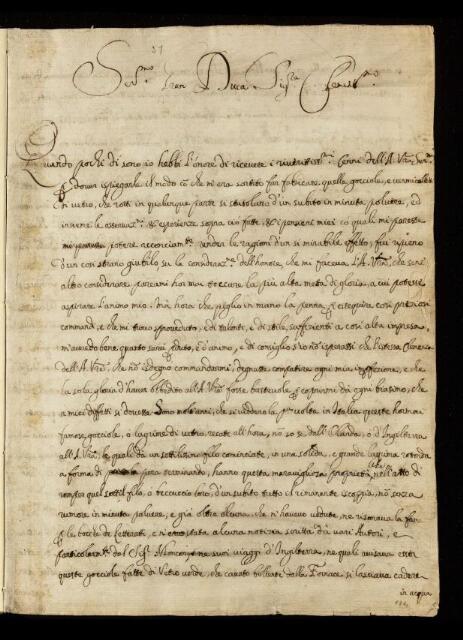 51
Ser.mo Gran Duca Sig.re Clem.mo
Quando pochi dì sono io hebbi l'onore di ricevere i cenni dell'A. V.ra Ser.ma
spiegarle il modo che m'era sortito far fabricare quelle gocciole, e vermicelli
in vetro, che rotti in qualunque parte si stritolano d'un subito in minuta polvere, ed
insieme le osservaz.i & esperienze sopra ciò fatte, & i pensieri miei co quali mi paresse
potere acconciam.te render la ragion d'un sì mirabile effetto, fui ripieno
d'un così strano giubilo su la consideraz.ne dell'honore, che mi faceva l'A. V.ra, che senz'
altro considerare, pareami hormai toccare la più alta meta di gloria, a cui potesse
aspirare l'animo mio. Ma hora che piglio in mano la penna p esequire così preziosi
comandi, e che mi trovo sproveduto, e di talenti, e di stile sufficienti a così alta impresa,
m'avvedo bene, quanto sarei stato, e d'animo, e di consiglio s'io non sperassi che l'istessa Clemenza
dell'A. V.ra, che non isdegnò comandarmi, degnasse compatire ogni mia imperfezione, e che
la sola gloria d'haver obbedito all'A. V.ra fosse bastevole p coprirmi da ogni biasimo, che
a miei difetti si dovesse. Sono molt'anni, che si viddero la p.a volta in Italia queste hormai
famose gocciole, o lagrime di vetro recate all'hora, non so se dall'Olanda, o d'Inghilterra
all'A. V.ra, le quali da un sottilissimo filo cominciate, in una solida, e grande lagrima rotonda
a forma di pera terminando, hanno questa maravigliosa proprietà, nell'atto di
romper quel sottil filo, o beccuccio loro, d'un subito tutto il rimanente scoppia, non senza
rumore in minuta polvere, e già oltre alcune, che n'havevo vedute, ne risonava la fama
p le bocche de letterati, e n'era stata alcuna notizia scritta da varii Autori, e
particolarm.te dal Sig.r Monconys ne suoi viaggi d'Inghilterra, ne quali avisava esser
queste gocciole fatte di Vetro verde, che cavato bollente dalla Fornace si lasciava cadere
in acqua